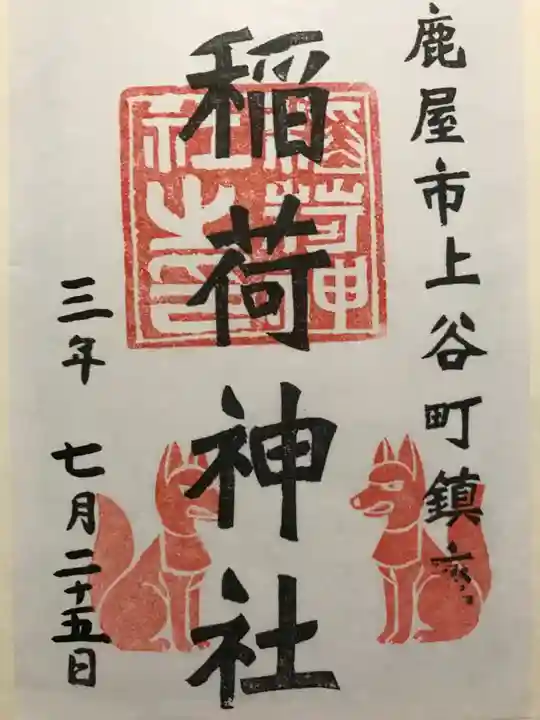 鹿屋市上谷町鎮齊
稲荷神社
三年 七月二十五日
稲荷神社之印